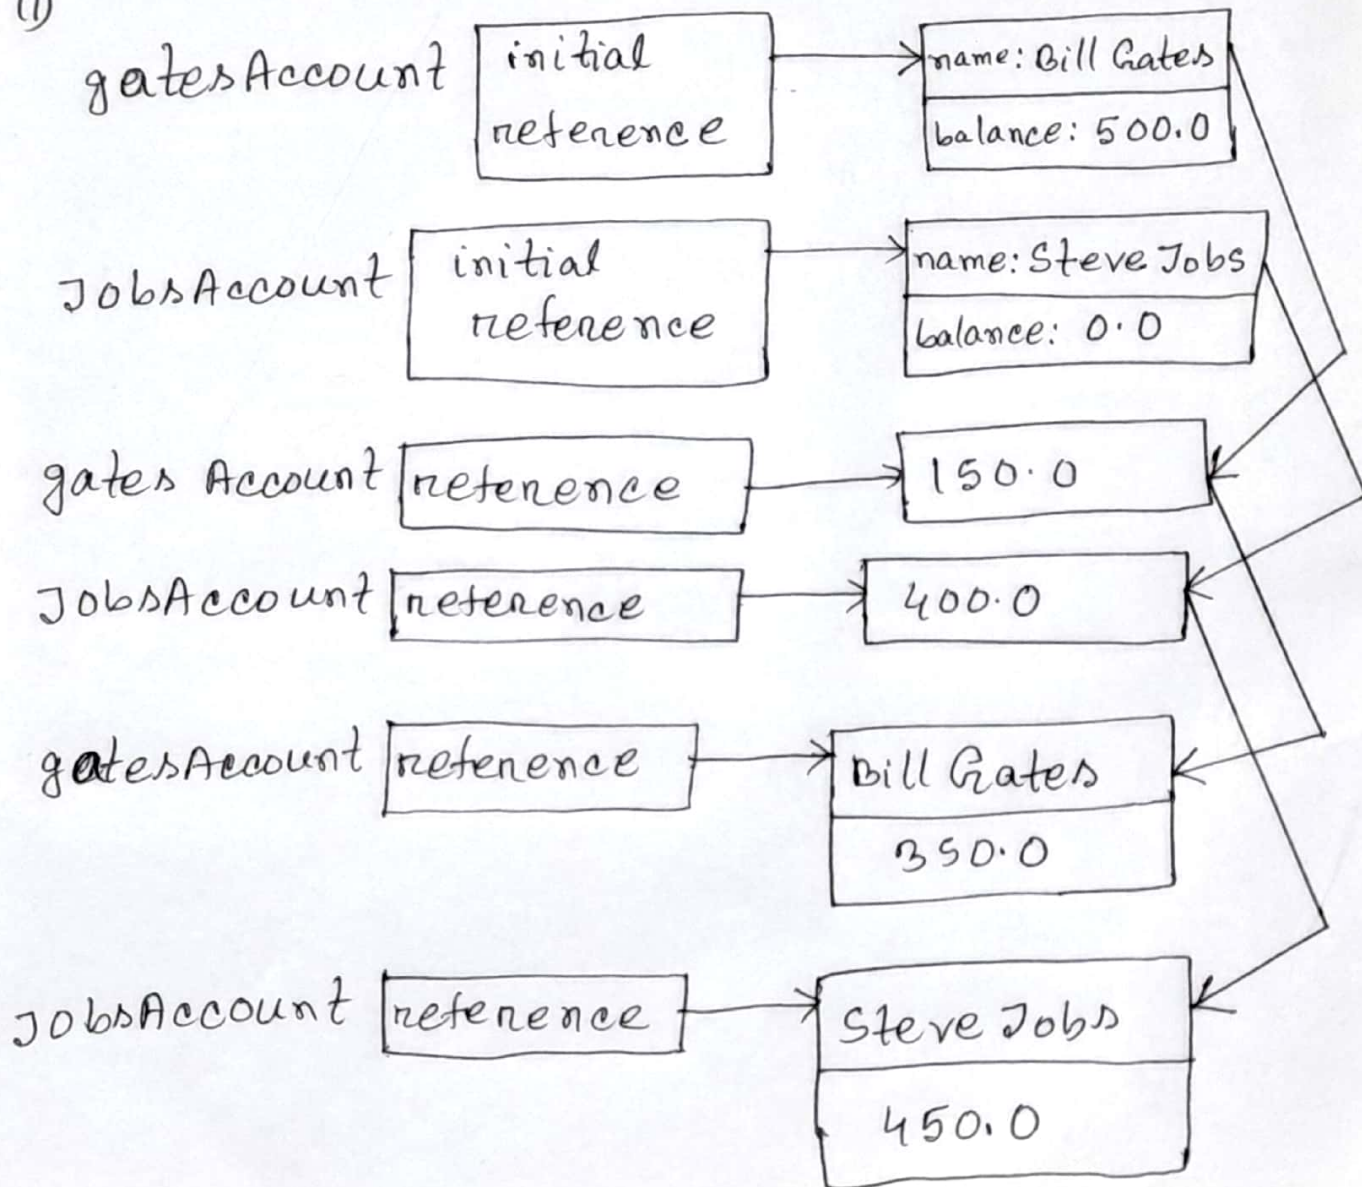 (1)
gatesAccount
initial
reference
name: Bill Gates
balance: 500.0
JobsAccount
initial
reference
name: Steve Jobs
balance: 0.0
gates Account
reference
150.0
JobsAccount
reference
400.0
gatesAccount
reference
Bill Gates
350.0
JobsAccount
reference
Steve Jobs
450.0